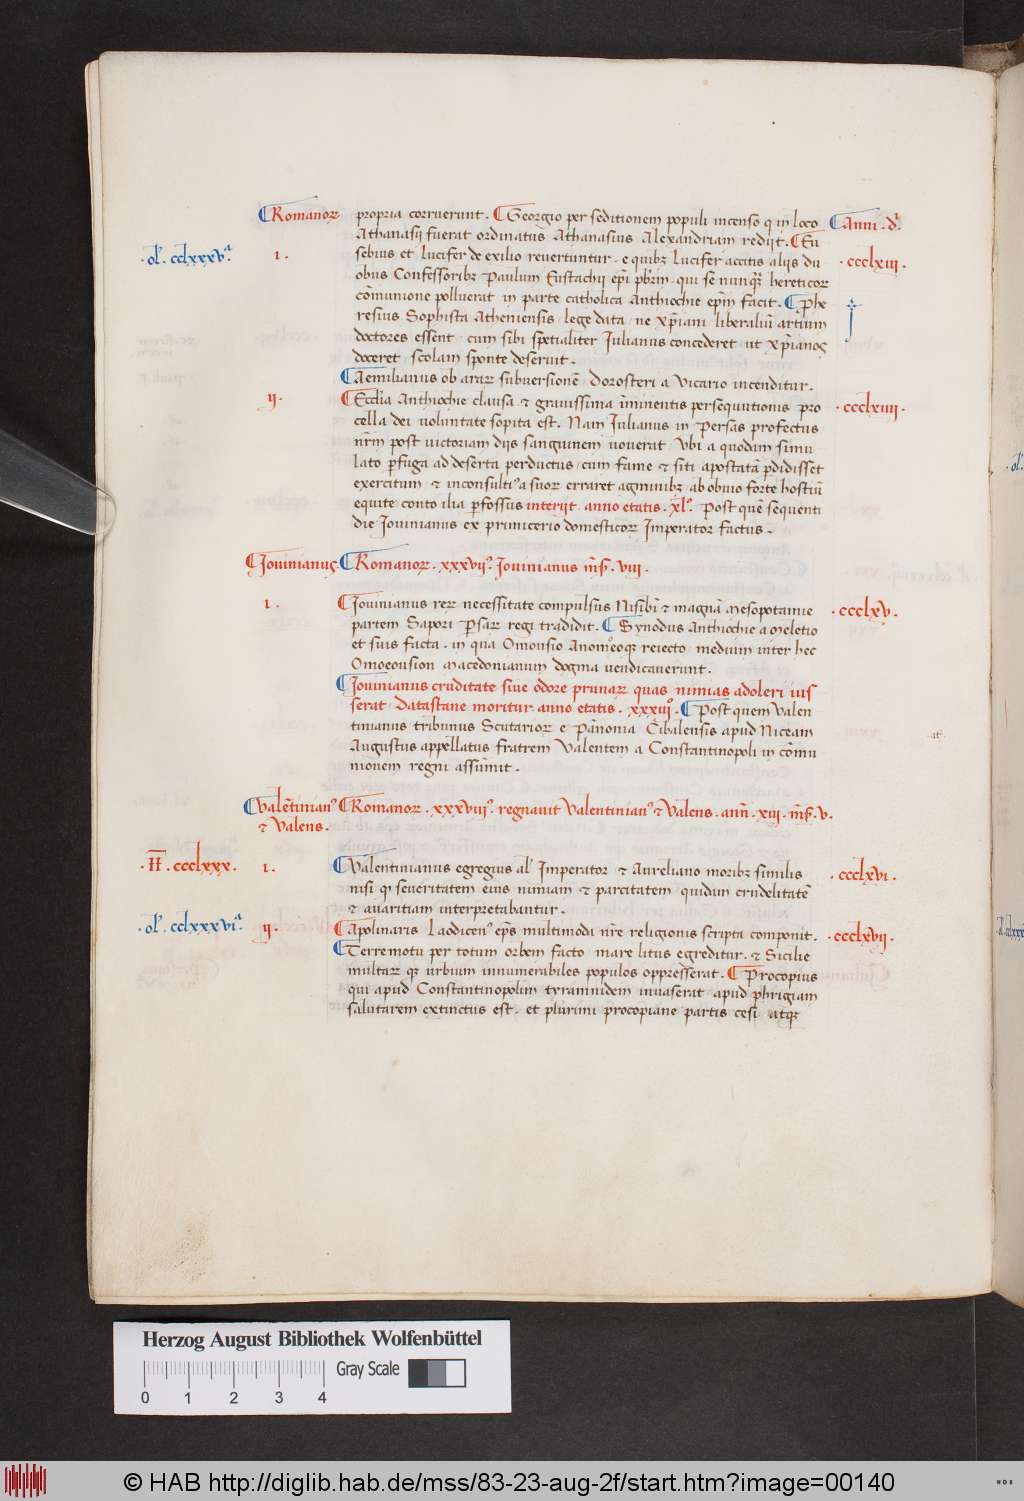 Romanoꝝ propria corruerunt. Georgio per seditionem populi incenso q̇ in loco Anni .d̾.
Athanasii fuerat ordinatus Athanasius Alexandriam rediit. Eu
.olꝰ. cclxxxv.ª ı. sebius et lucifer de exilio reuertuntur. e quibꝫ lucifer accitis aliis du . ccclxiii .
obus Confessoribꝫ Paulum Eustachii ep̄i p̄brm̄. qui se nunqꝫ hereticoꝝ
cōmunione polluerat in parte catholica Anthiochie ep̄m facit. Phe
resius Sophista Atheniensis lege data ne xp̄iani liberaliū artium
doctores essent. cum sibi spetialiter Iulianus concederet ut xp̄ianos
doceret scolam sponte deseruit.
Aemilianus ob araꝝ subuersionē Dorosteri a Vicario incenditur.
ıȷ. Eccl̄ia Anthiochie clausa ⁊ grauissima im̄inentis persequutionis pro . ccclxiiii .
cella dei uoluntate sopita est. Nam Iulianus in Persas profectus
nr̄m post uictoriam diis sanguinem uouerat Vbi a quodam simu
lato ꝑfuga ad deserta perductus cum fame ⁊ siti apostatā ꝑdidisset
exercitum ⁊ inconsultiꝰ a suoꝝ erraret agminibꝫ ab obuio forte hostiū
equite conto ilia ꝑfossus interiit anno etatis. xl.º Post quē sequenti
die Iouinianus ex primicerio domesticoꝝ Imperator factus.
Iouinianus. Romanoꝝ. xxxvii.º Iouinianus m̄s. viii.
ı. Iouinianus reꝝ necessitate compulsus Nisibī ⁊ magnā Mesopotamie . ccclxv .
partem Sapori Persaꝝ regi tradidit. Synodus Anthiochie a Meletio
et suis facta. in qua Omousio Anomeoqꝫ reiecto medium inter hec
Omoeousion Macedonianum dogma uendicauerunt.
Iouinianus cruditate siue odore prunaꝝ quas nimias adoleri ius
serat Datastane moritur anno etatis. xxxiii.º Post quem Valen
tinianus tribunus Scutarioꝝ e Pānonia Cibalensis apud Niceam
Augustus appellatus fratrem Valentem a Constantinopoli in cōmu
nionem regni assūmit.
Valētinianꝰ Romanoꝝ. xxxviii.º regnauit Valentinianꝰ ⁊ Valens. ann̄. xiii. m̄s. v.
⁊ Valens.
.H̄. ccclxxx. ı. Valentinianus egregius alꝰ Imperator ⁊ Aureliano moribꝫ similis . ccclxvi .
nisi ꝙ seueritatem eius nimiam ⁊ parcitatem quidam crudelitatē
⁊ auaritiam interpretabantur.
.olꝰ. cclxxxvi.ª ıȷ. Apolinaris Laodicenꝰ ep̄s multimoda nr̄e religionis scripta componit. . ccclxvii .
Terremotu per totum orbem facto mare litus egreditur. ⁊ Sicilie
multaꝝ qꝫ urbium innumerabiles populos oppresserat. Procopius
qui apud Constantinopolim tyrannidem inuaserat apud phrigiam
salutarem extinctus est. et plurimi procopiane partis cesi atqꝫ
Herzog August Bibliothek Wolfenbüttel
Gray Scale
0 1 2 3 4
© HAB http://diglib.hab.de/mss/83-23-aug-2f/start.htm?image=00140